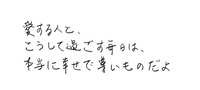 愛する人と、
こうして過ごす毎日は、
本当に幸せで尊いものだよ